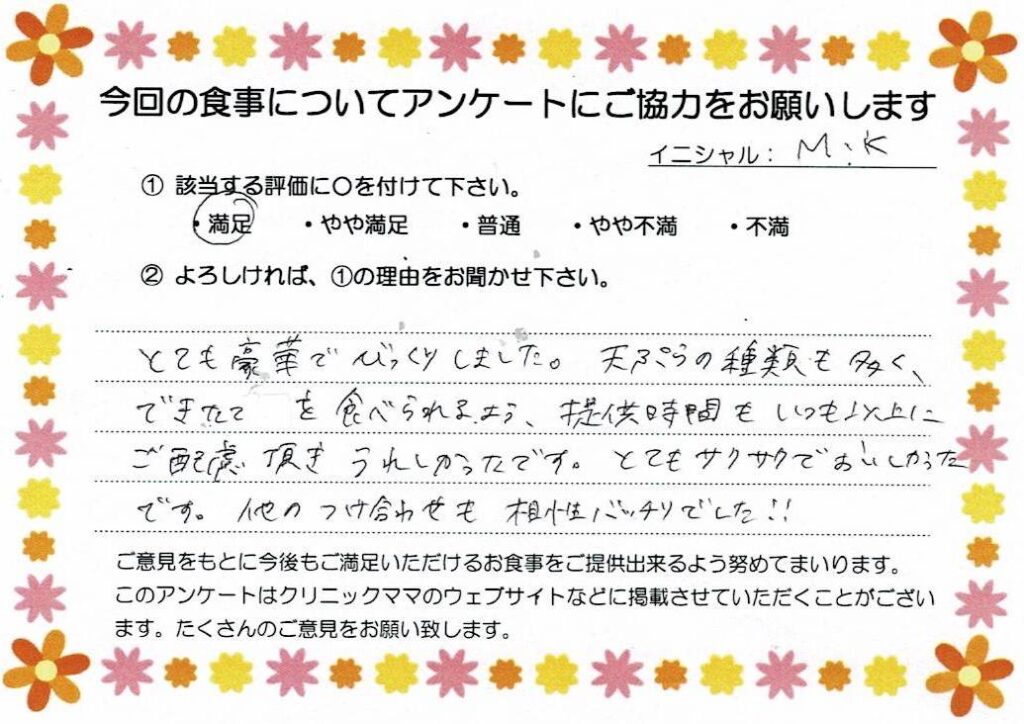 今回の食事についてアンケートにご協力をお願いします
イニシャル： M.K
① 該当する評価に〇を付けて下さい。
・満足 ・やや満足 ・普通 ・やや不満 ・不満
② よろしければ、①の理由をお聞かせ下さい。
とても豪華でびっくりしました。天ぷらの種類も多く、
できたて を食べられるよう、提供時間もいつも以上に
ご配慮頂きうれしかったです。とてもサクサクでおいしかった
です。他のつけ合わせも相性バッチリでした!!
ご意見をもとに今後もご満足いただけるお食事をご提供出来るよう努めてまいります。
このアンケートはクリニックママのウェブサイトなどに掲載させていただくことがござい
ます。たくさんのご意見をお願い致します。